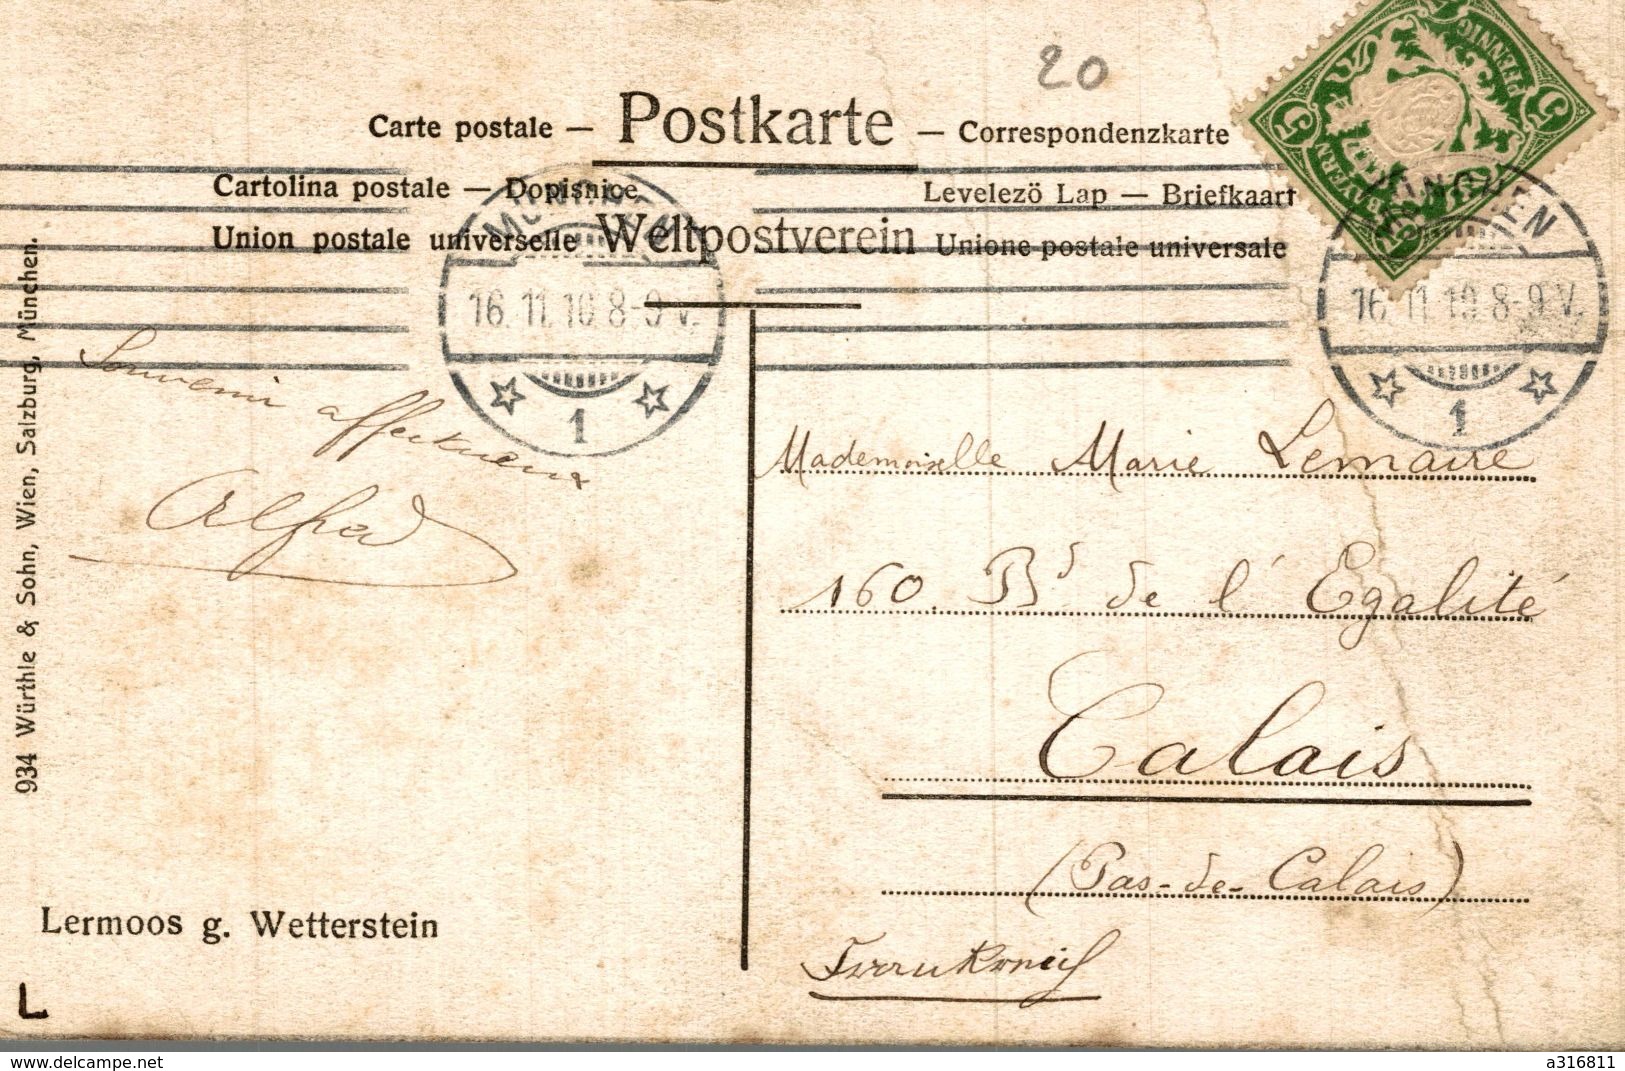 20
Carte postale — Postkarte — Correspondenzkarte
Cartolina postale — Dopisnice Levelezö Lap — Briefkaart
Union postale universelle Weltpostverein Unione postale universale
PFENNIG
5
5
BAYERN
MÜNCHEN
16. 11. 10. 8-9 V.
1
MÜNCHEN
16. 11. 10. 8-9 V.
1
Souvenir affectueux
Alfred
Mademoiselle Marie Lemaire
160. Bd de l'Egalité
Calais
(Pas-de-Calais)
Frankreich
934 Würthle & Sohn, Wien, Salzburg, München.
Lermoos g. Wetterstein
L
www.delcampe.net
a316811